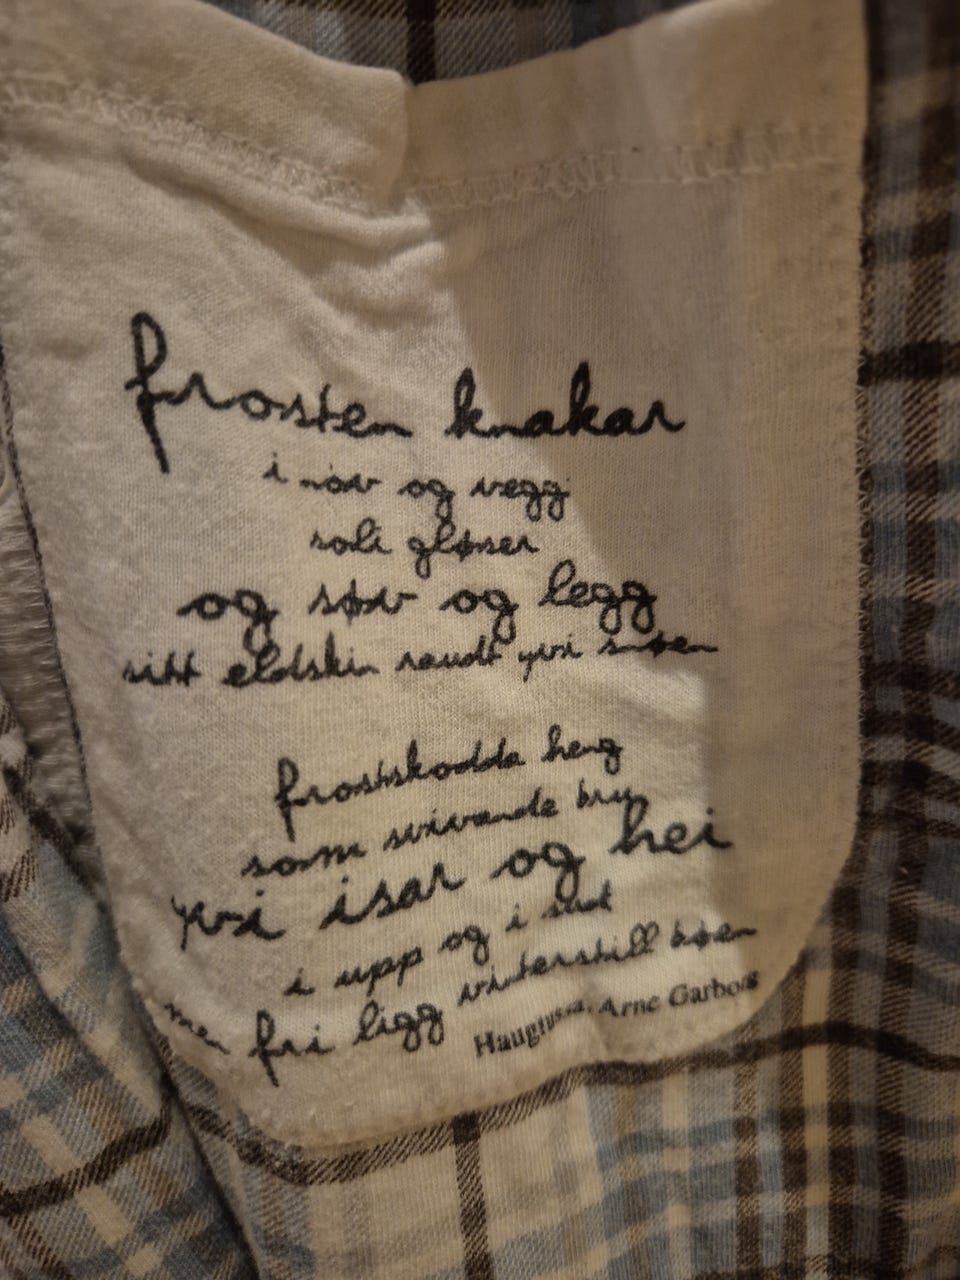 frosten knakar
i nov og vegg
soli gløser
og søv og legg
sitt eldskin raudt yvi snøen
frostskodda heng
som svivande bru
yvi isar og hei
i upp og i
men fri ligg vinterstill bøen
Haugtussa, Arne Garborg